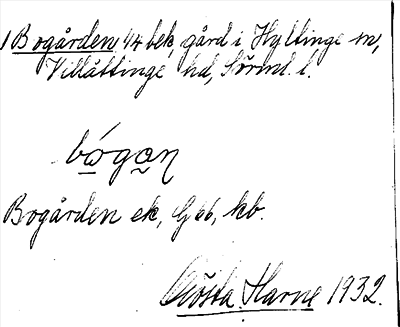 1 Bogården 1/4 bek, gård i Hyltinge sn,
Villåttinge hd, Sörml. l.
bógan
Bogården ek, G66, kb.
Gösta Harne 1932.